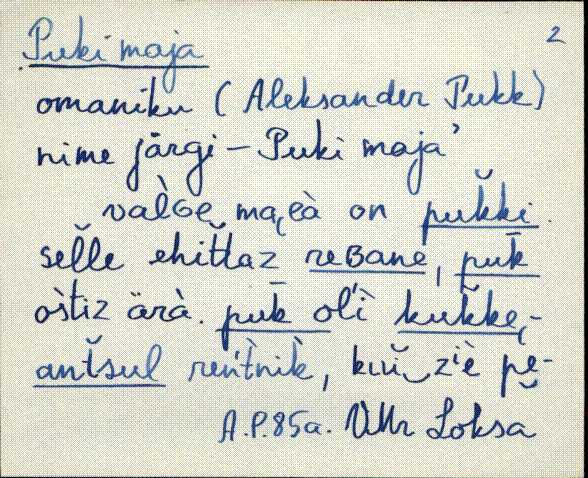 2
Puki maja
omaniku (Aleksander Pukk)
nime järgi – Puki maja'
on puk̆ki.
sel̆le ehit̆taz reʙane, puk̄
òstiz ärà. puk̄ ol'ì kuk̆ke,-
ant̆sul ren't̀nik̀,
A.P. 85a. VMr Loksa